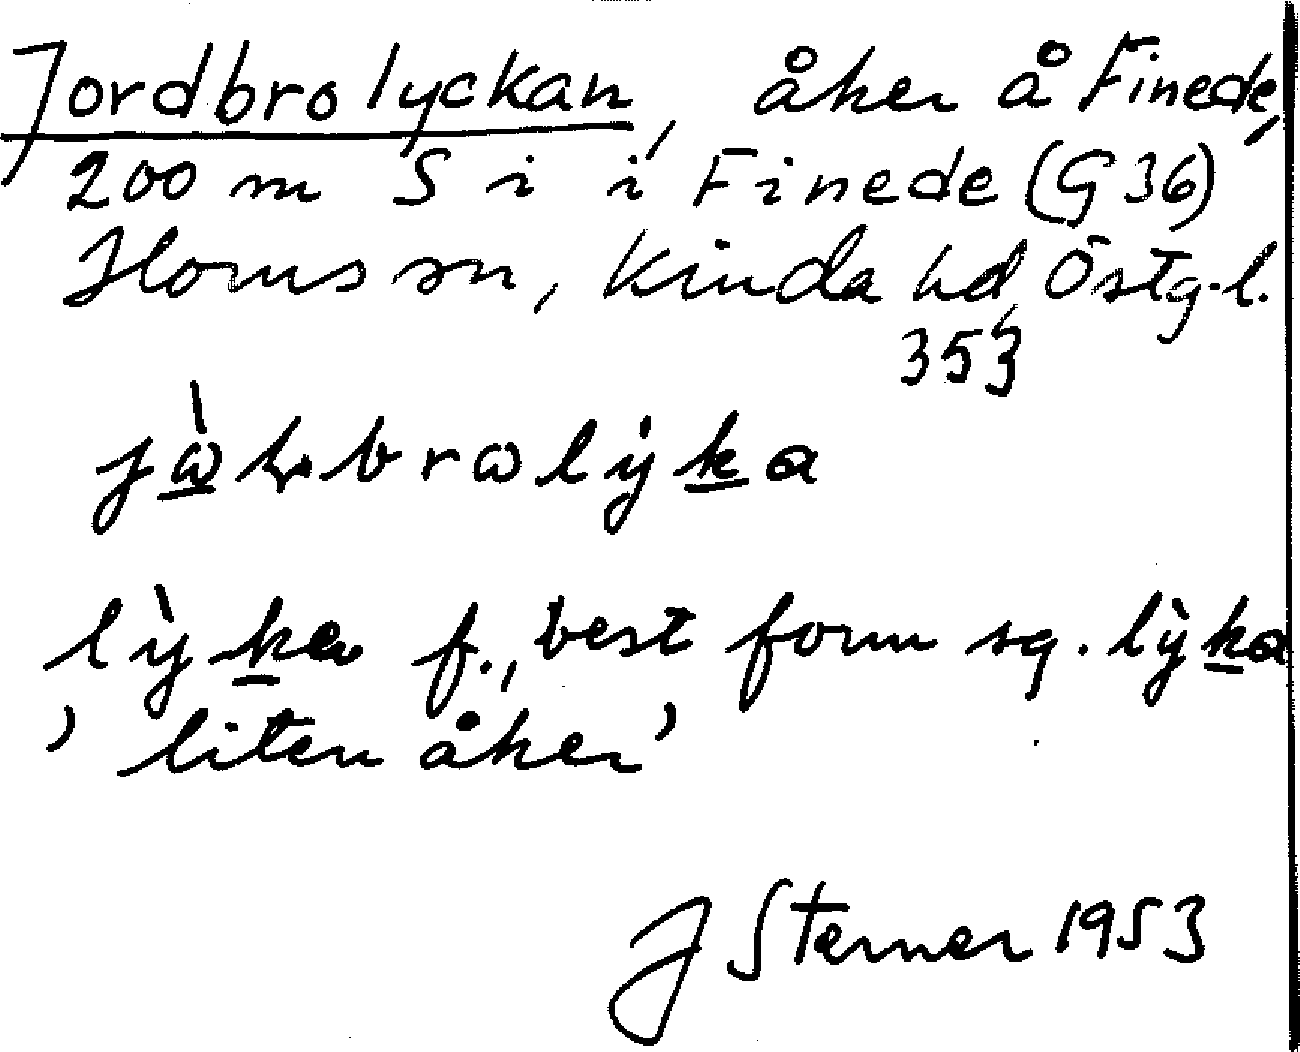 Jordbrolyckan, åker å Finede,
200 m S i i Finede (G 36)
Horns sn, Kinda hd, Östg.l.
353
brωlyka
lỳka f., best form sg. lỳka
' liten åker '
J Sterner 1953